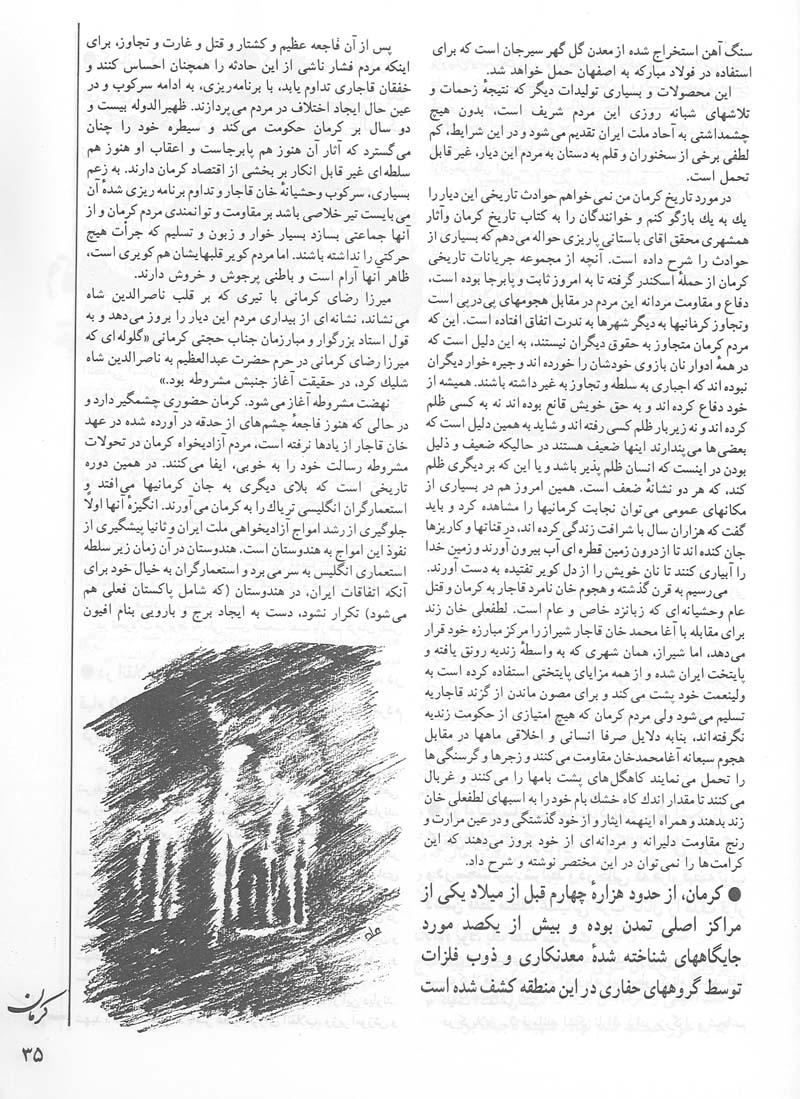 سنگ آهن استخراج شده از معدن گل گهر سیرجان است که برای
استفاده در فولاد مبارکه به اصفهان حمل خواهد شد.
این محصولات و بسیاری تولیدات دیگر که نتیجهٔ زحمات و
تلاشهای شبانه روزی این مردم شریف است، بدون هیچ
چشمداشتی به آحاد ملت ایران تقدیم می‌شود و در این شرایط، کم
لطفی برخی از سخنوران و قلم به دستان به مردم این دیار، غیر قابل
تحمل است.
در مورد تاریخ کرمان من نمی خواهم حوادث تاریخی این دیار را
یك به یك بازگو کنم و خوانندگان را به کتاب تاریخ کرمان وآثار
همشهری محقق اقای باستانی پاریزی حواله می‌دهم که بسیاری از
حوادث را شرح داده است. آنچه از مجموعه جریانات تاریخی
کرمان از حملهٔ اسکندر گرفته تا به امروز ثابت و پابرجا بوده است،
دفاع و مقاومت مردانه این مردم در مقابل هجومهای پی‌درپی است
وتجاوز کرمانیها به دیگر شهرها به ندرت اتفاق افتاده است. این که
مردم کرمان متجاوز به حقوق دیگران نیستند، به این دلیل است که
در همهٔ ادوار نان بازوی خودشان را خورده اند و جیره خوار دیگران
نبوده اند که اجباری به سلطه و تجاوز به غیر داشته باشند. همیشه از
خود دفاع کرده اند و به حق خویش قانع بوده اند نه به کسی ظلم
کرده اند و نه زیر بار ظلم کسی رفته اند و شاید به همین دلیل است که
بعضی‌ها می‌پندارند اینها ضعیف هستند در حالیکه ضعیف و ذلیل
بودن در اینست که انسان ظلم پذیر باشد و یا این که بر دیگری ظلم
کند، که هر دو نشانهٔ ضعف است. همین امروز هم در بسیاری از
مکانهای عمومی می‌توان نجابت کرمانیها را مشاهده کرد و باید
گفت که هزاران سال با شرافت زندگی کرده اند، در قناتها و کاریزها
جان کنده اند تا از درون زمین قطره ای آب بیرون آورند و زمین خدا
را آبیاری کنند تا نان خویش را از دل کویر تفتیده به دست آورند.
می‌رسیم به قرن گذشته و هجوم خان نامرد قاجار به کرمان و قتل
عام وحشیانه ای که زبانزد خاص و عام است. لطفعلی خان زند
برای مقابله با آغا محمد خان قاجار شیراز را مرکز مبارزه خود قرار
می‌دهد، اما شیراز، همان شهری که به واسطهٔ زندیه رونق یافته و
پایتخت ایران شده و از همه مزایای پایتختی استفاده کرده است به
ولینعمت خود پشت می‌کند و برای مصون ماندن از گزند قاجاریه
تسلیم می‌شود ولی مردم کرمان که هیچ امتیازی از حکومت زندیه
نگرفته‌اند، بنابه دلایل صرفا انسانی و اخلاقی ماهها در مقابل
هجوم سبعانه آغامحمدخان مقاومت می‌کنند و زجرها و گرسنگی‌ها
را تحمل می‌نمایند کاهگل‌های پشت بامها را می‌کنند و غربال
می‌کنند تا مقدار اندك کاه خشك بام خود را به اسبهای لطفعلی خان
زند بدهند و همراه اینهمه ایثار و از خود گذشتگی و در عین مرارت و
رنج مقاومت دلیرانه و مردانه‌ای از خود بروز می‌دهند که این
کرامت‌ها را نمی‌توان در این مختصر نوشته و شرح داد.
● کرمان، از حدود هزارهٔ چهارم قبل از میلاد یکی از
مراکز اصلی تمدن بوده و بیش از یکصد مورد
جایگاههای شناخته شدهٔ معدنکاری و ذوب فلزات
توسط گروههای حفاری در این منطقه کشف شده است
پس از آن فاجعه عظیم و کشتار و قتل و غارت و تجاوز، برای
اینکه مردم فشار ناشی از این حادثه را همچنان احساس کنند و
خفقان قاجاری تداوم یابد، با برنامه‌ریزی، به ادامه سرکوب و در
عین حال ایجاد اختلاف در مردم می‌پردازند. ظهیرالدوله بیست و
دو سال بر کرمان حکومت می‌کند و سیطره خود را چنان
می‌گسترد که آثار آن هنوز هم پابرجاست و اعقاب او هنوز هم
سلطه‌ای غیر قابل انکار بر بخشی از اقتصاد کرمان دارند. به زعم
بسیاری، سرکوب وحشیانهٔ خان قاجار و تداوم برنامه ریزی شدهٔ آن
می‌بایست تیر خلاصی باشد بر مقاومت و توانمندی مردم کرمان و از
آنها جماعتی بسازد بسیار خوار و زبون و تسلیم که جرأت هیچ
حرکتی را نداشته باشند. اما مردم کویر قلبهایشان هم کویری است،
ظاهر آنها آرام است و باطنی پرجوش و خروش دارند.
میرزا رضای کرمانی با تیری که بر قلب ناصرالدین شاه
می‌نشاند، نشانه‌ای از بیداری مردم این دیار را بروز می‌دهد و به
قول استاد بزرگوار و مبارزمان جناب حجتی کرمانی «گلوله‌ای که
میرزا رضای کرمانی در حرم حضرت عبدالعظیم به ناصرالدین شاه
شلیك کرد، در حقیقت آغاز جنبش مشروطه بود.»
نهضت مشروطه آغاز می‌شود. کرمان حضوری چشمگیر دارد و
در حالی که هنوز فاجعهٔ چشم‌های از حدقه در آورده شده در عهد
خان قاجار از یادها نرفته است، مردم آزادیخواه کرمان در تحولات
مشروطه رسالت خود را به خوبی، ایفا می‌کنند. در همین دوره
تاریخی است که بلای دیگری به جان کرمانیها می‌افتد و
استعمارگران انگلیسی تریاك را به کرمان می‌آورند. انگیزهٔ آنها اولاً
جلوگیری از رشد امواج آزادیخواهی ملت ایران و ثانیا پیشگیری از
نفوذ این امواج به هندوستان است. هندوستان در آن زمان زیر سلطه
استعماری انگلیس به سر می‌برد و استعمارگران به خیال خود برای
آنکه اتفاقات ایران، در هندوستان (که شامل پاکستان فعلی هم
می‌شود) تکرار نشود، دست به ایجاد برج و بارویی بنام افیون
کرمان
۳۵